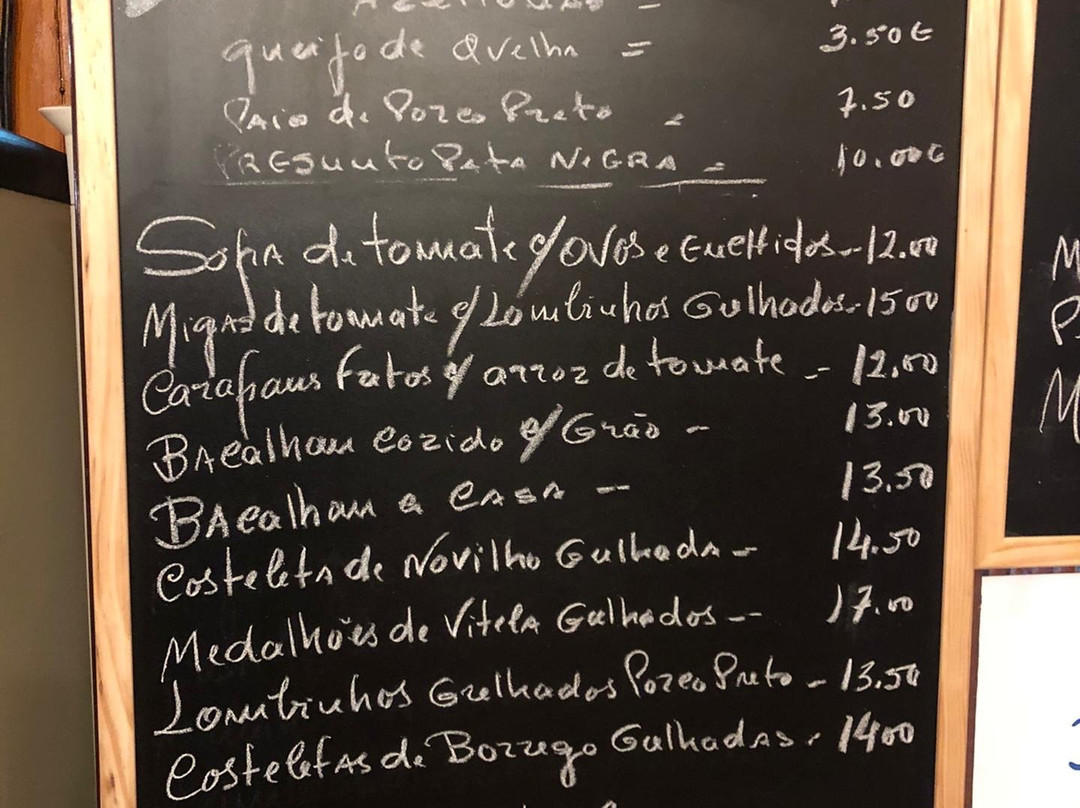 Azeitonas -
queijo de Ovelha = 3.50€
Paio de Porco Preto = 7.50
PRESunto Pata NEGRA = 10.00€
Sopa de tomate c/ovos e Enchidos - 12.00
Migas de tomate c/ Lombinhos Grelhados - 1500
Carapaus fritos c/ arroz de tomate - 12.00
Bacalhau cozido c/ Grão - 13.00
Bacalhau a CASA - 13.50
Costeleta de Novilho Grelhada - 14.50
Medalhões de Vitela Grelhados - 17.00
Lombinhos Grelhados Porco Preto - 13.50
Costeletas de Borrego Grelhadas - 1400
M
P
M